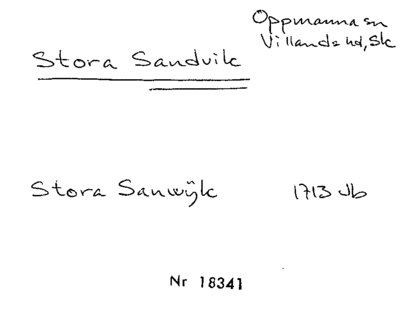 Oppmanna sn
Villands hd, Sk
Stora Sandvik
Stora Sanwijk 1713 Jb
Nr 18341